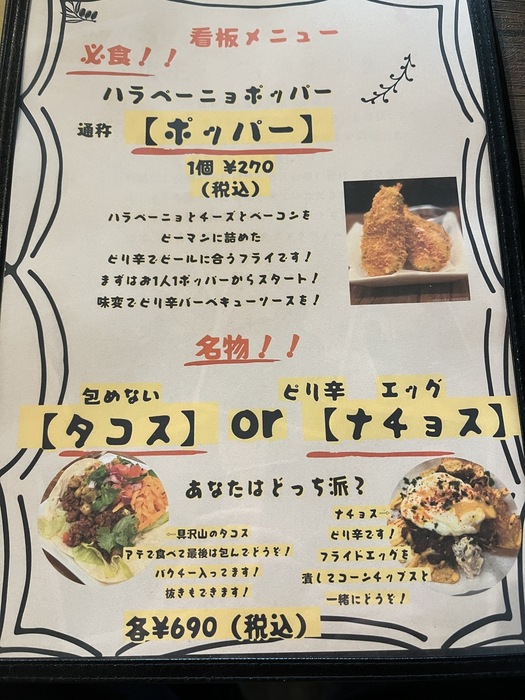 看板メニュー
必食！！
ハラペーニョポッパー
通称 【ポッパー】
1個 ¥270
（税込）
ハラペーニョとチーズとベーコンを
ピーマンに詰めた
ピリ辛でビールに合うフライです！
まずはお1人1ポッパーからスタート！
味変でピリ辛バーベキューソースを！
名物！！
包めない ピリ辛 エッグ
【タコス】 or 【ナチョス】
あなたはどっち派？
←具沢山のタコス
アテで食べて最後は包んでどうぞ！
パクチー入ってます！
抜きもできます！
ナチョス→
ピリ辛です！
フライドエッグを
潰してコーンチップスと
一緒にどうぞ！
各¥690（税込）